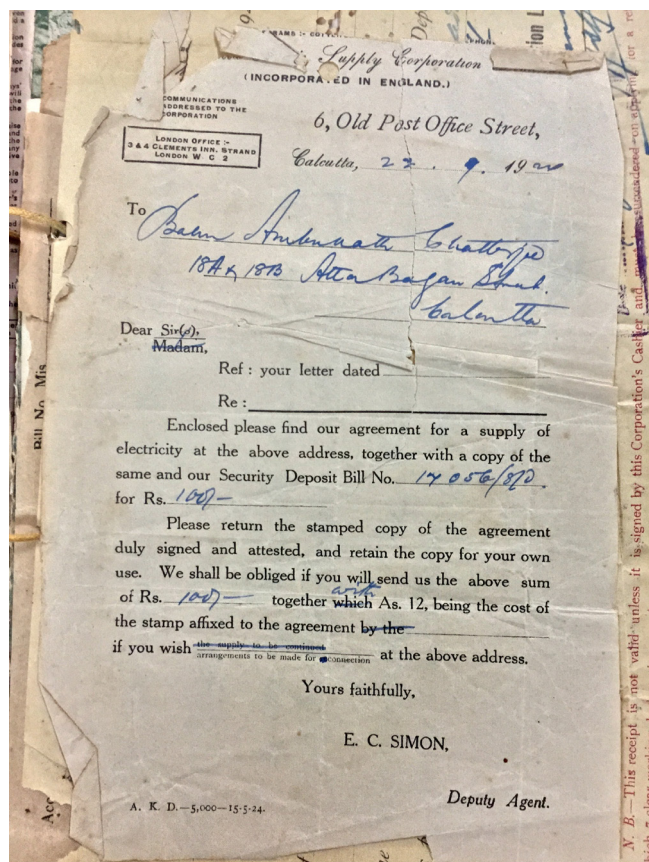 Supply Corporation
(INCORPORATED IN ENGLAND.)
COMMUNICATIONS
ADDRESSED TO THE
CORPORATION
6, Old Post Office Street,
LONDON OFFICE :-
3 & 4 CLEMENTS INN. STRAND
LONDON W C 2
Calcutta, 22 . 9. 19
To
Chatterjee
18A & 18B Street.
Calcutta
Dear Sir(s),
Madam,
Ref : your letter dated
Re :
Enclosed please find our agreement for a supply of
electricity at the above address, together with a copy of the
same and our Security Deposit Bill No.
for Rs. 100/-
Please return the stamped copy of the agreement
duly signed and attested, and retain the copy for your own
use. We shall be obliged if you will send us the above sum
with
of Rs. 100/- together which As. 12, being the cost of
the stamp affixed to the agreement by the
the supply to be continued
if you wish arrangements to be made for connection at the above address.
Yours faithfully,
E. C. SIMON,
Deputy Agent.
A. K. D.—5,000—15-5-24.
Bill No. Mis
Acc
N. B.—This receipt is not valid unless it is signed by this Corporation's Cashier and surrendered on